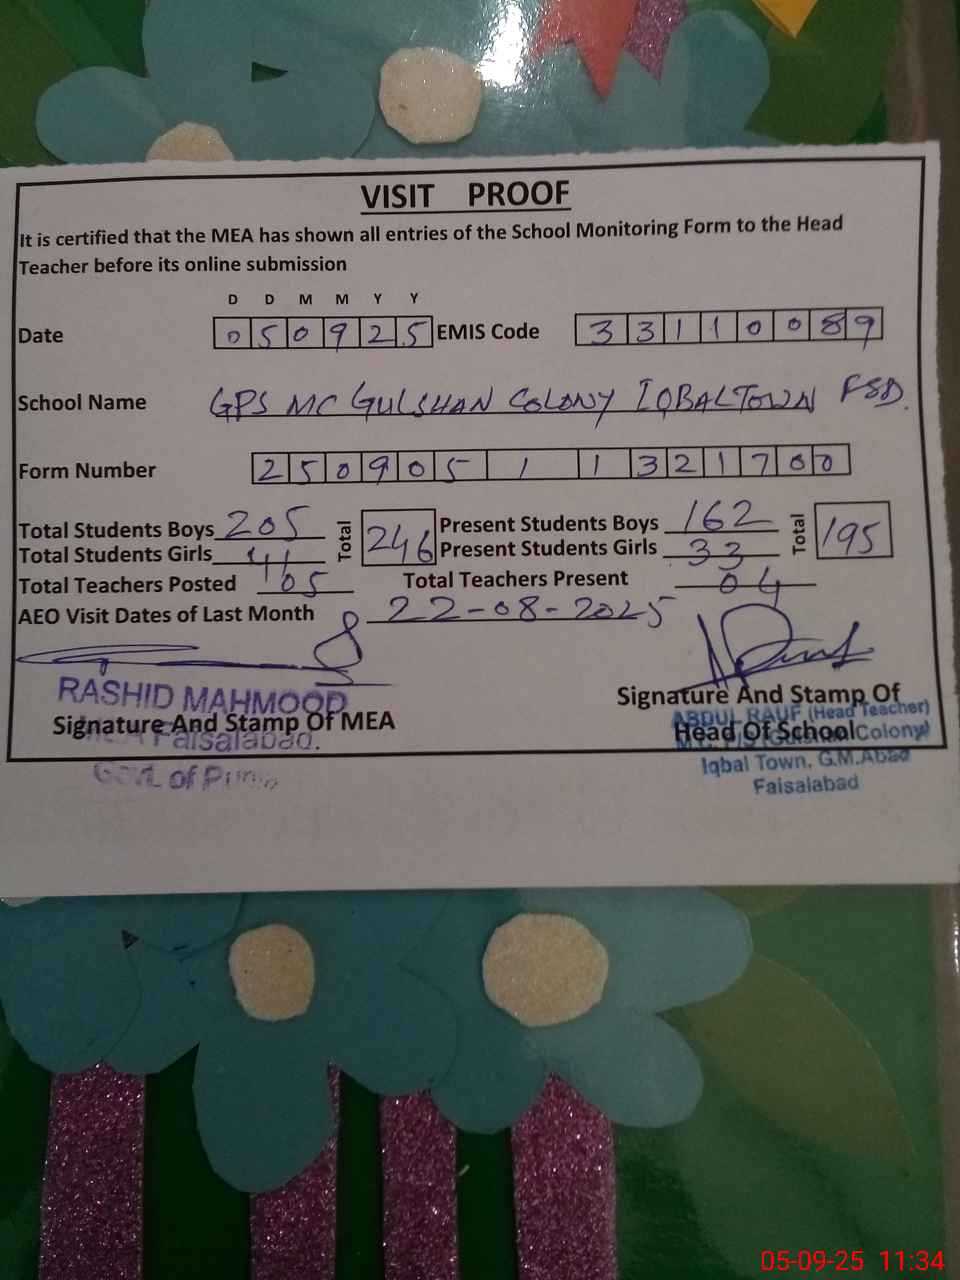 VISIT PROOF
It is certified that the MEA has shown all entries of the School Monitoring Form to the Head
Teacher before its online submission
D D M M Y Y
Date 050925 EMIS Code 33110089
School Name GPS MC GULSHAN COLONY IQBALTOWN FSD.
Form Number 25090511321700
Total Students Boys 205 Total 246 Present Students Boys 162 Total 195
Total Students Girls 41 Present Students Girls 33
Total Teachers Posted 05 Total Teachers Present 04
AEO Visit Dates of Last Month 22-08-2025
RASHID MAHMOOD
Signature And Stamp Of MEA
MEA Faisalabad.
Govt. of
Signature And Stamp Of
ABDUL RAUF (Head Teacher)
Head Of School
Colony
Iqbal Town, G.M.Abad
Faisalabad
05-09-25 11:34